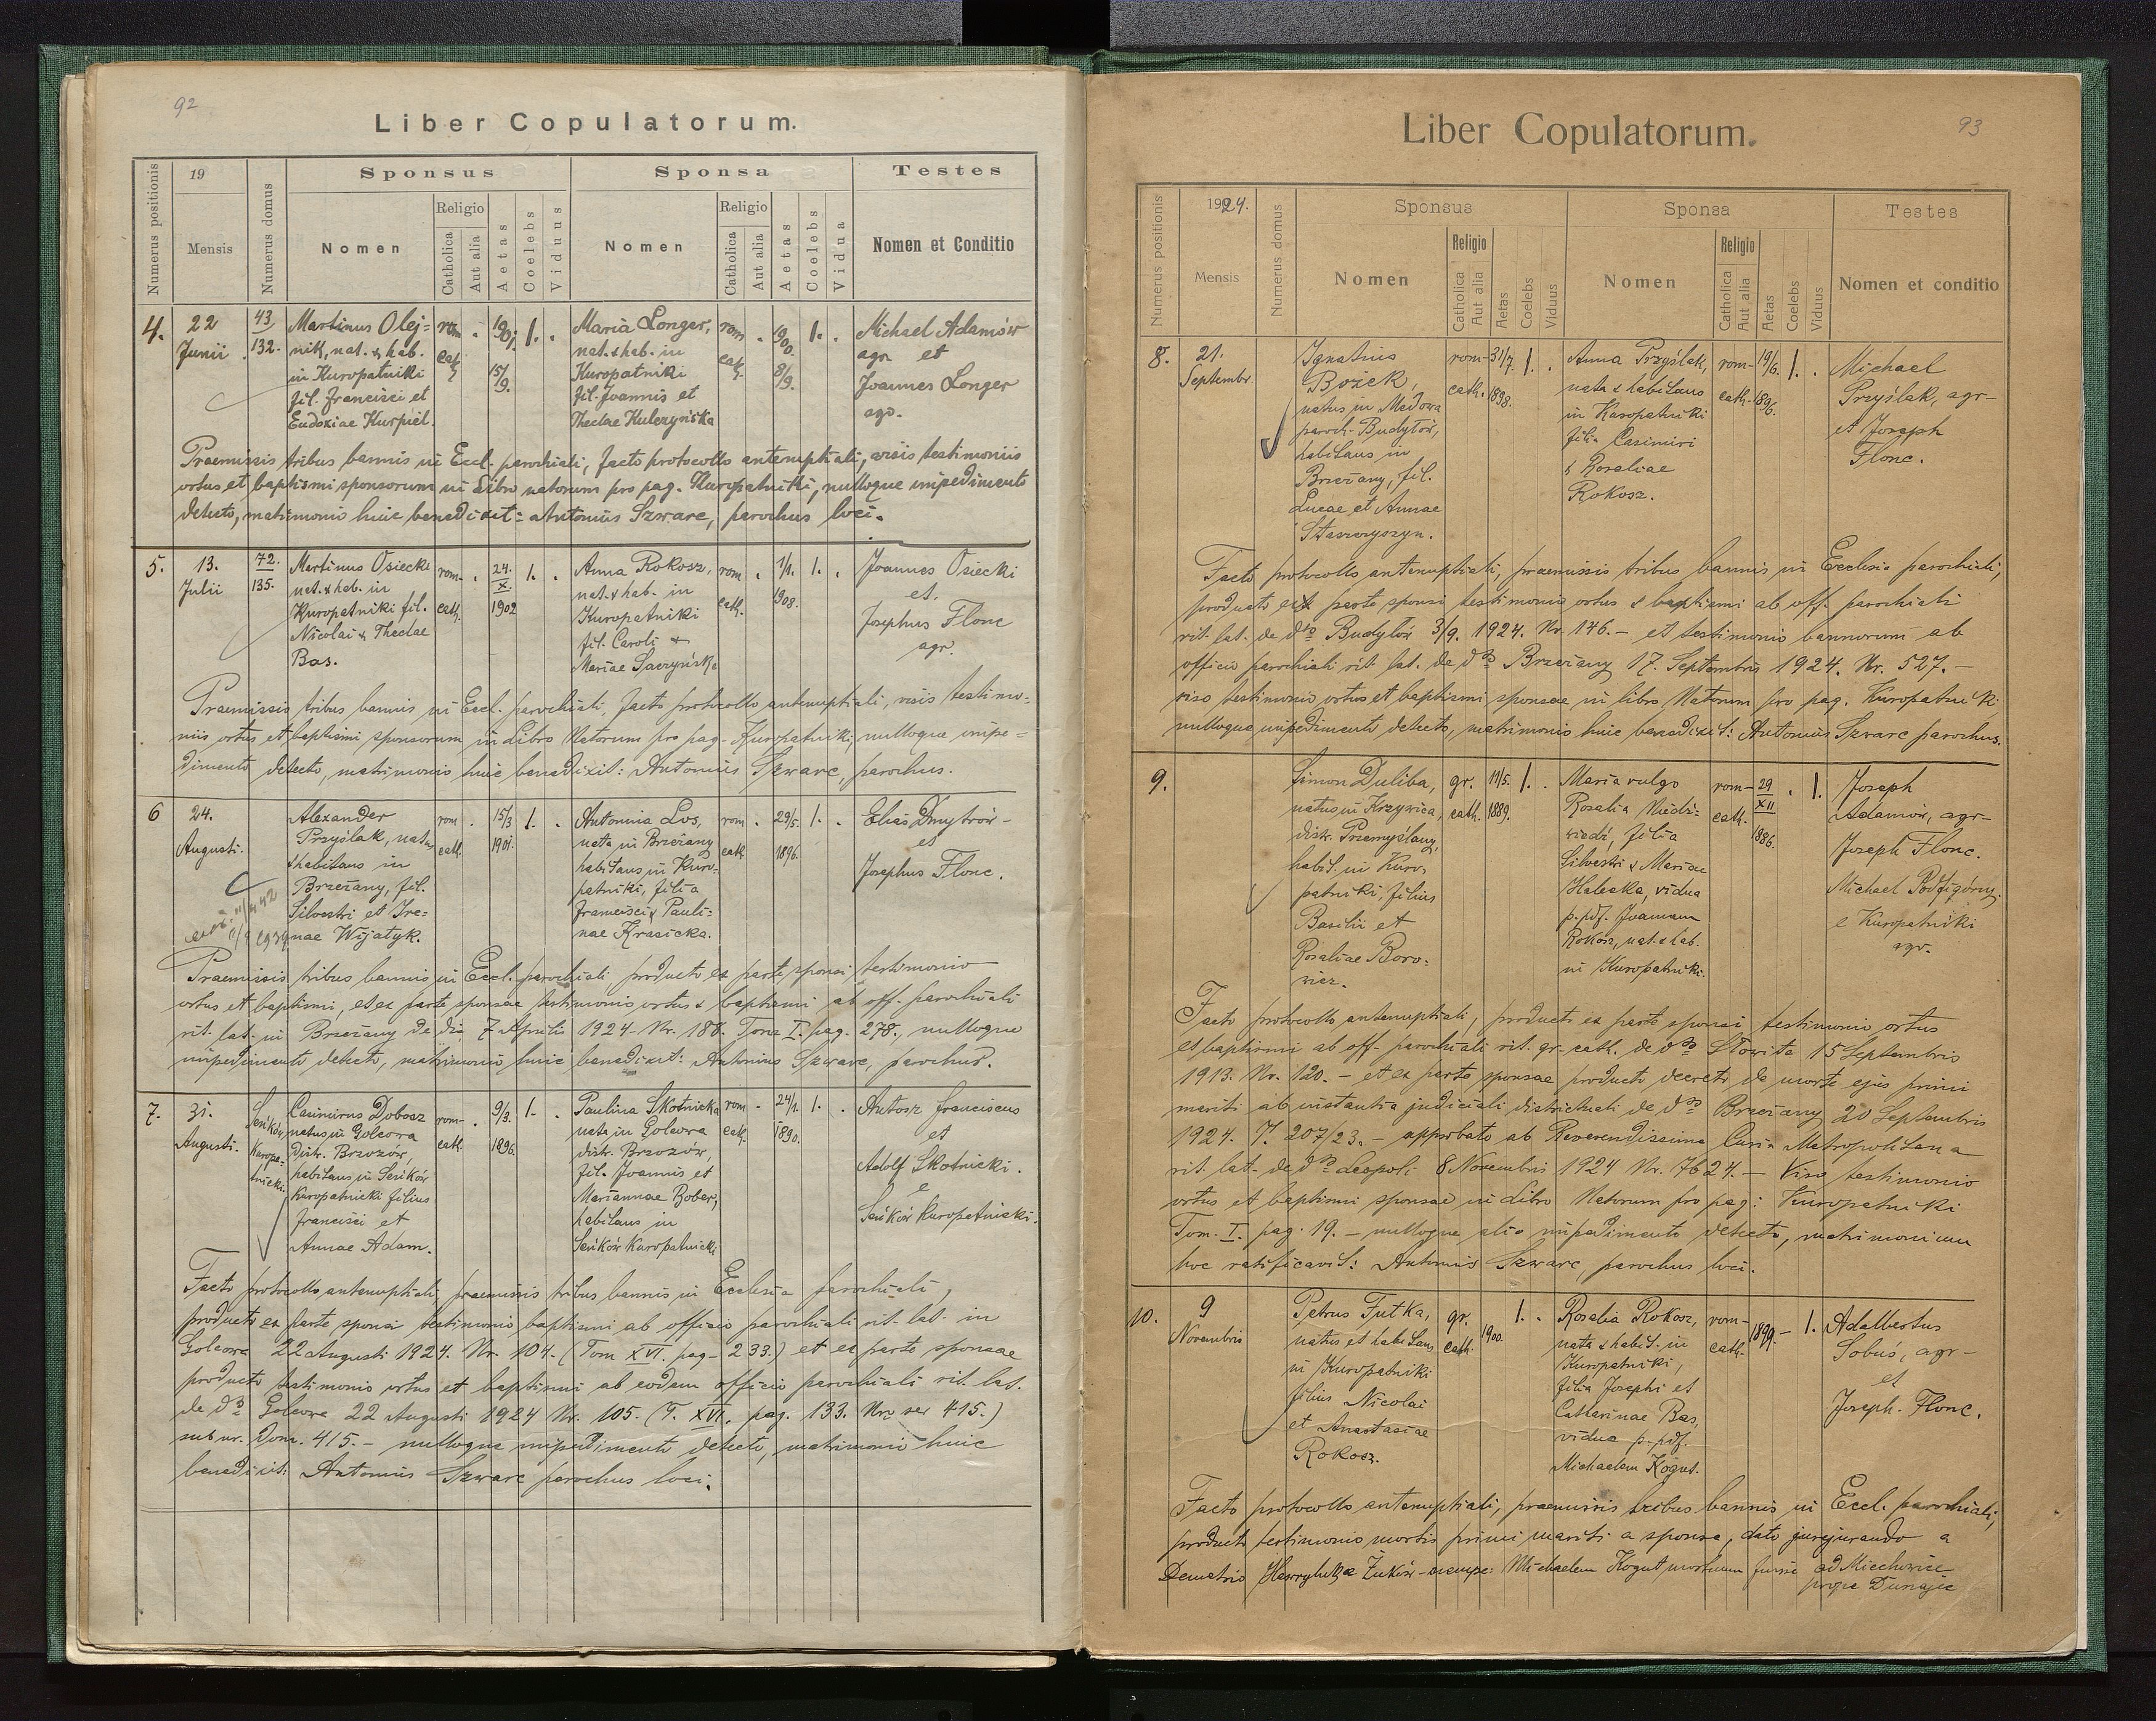 92
Liber Copulatorum.
Numerus positionis
19
Mensis
Numerus domus
Sponsus
Nomen
Religio
Catholica
Aut alia
Aetas
Coelebs
Viduus
Sponsa
Nomen
Religio
Catholica
Aut alia
Aetas
Coelebs
Vidua
Testes
Nomen et Conditio
4.
22
Junii
43
132.
Martinus Olej=
nik, nat. & hab.
in Kuropatniki
fil. Francisci et
Eudoxiae Kurpiel.
rom
cath
15/9.
1.
Maria Longer,
nat. & hab. in
Kuropatniki
fil. Joannis et
Theclae Kulczyńska
rom
cath.
1900.
8/9.
1.
Michael Adamów
agr. et
Joannes Longer
agr.
Praemissis tribus bannis in Eccl. parochiali, facto protocollo antenuptiali, visis testimoniis
ortus et baptismi sponsorum in Libro natorum pro pag. Kuropatniki, nulloque impedimento
detecto, matrimonio huic benedixit: Antonius Szwarc, parochus loci.
5.
13.
Julii
72.
135.
Martinus Osiecki
nat. & hab. in
Kuropatniki fil.
Nicolai & Theclae
Bas.
rom.
cath.
24.
X.
1902
1.
Anna Rokosz,
nat. & hab. in
Kuropatniki
fil. Caroli &
Mariae Saczyńska
rom
cath.
1/1.
1908.
1.
Joannes Osiecki
et.
Josephus Flonc
agr.
Praemissis tribus bannis in Eccl. parochiali, facto protocollo antenuptiali, visis testimo=
niis ortus et baptismi sponsorum in Libro Natorum pro pag. Kuropatniki, nulloque impe=
dimento detecto, matrimonio huic benedixit: Antonius Szwarc, parochus.
6
24.
Augusti.
Alexander
Przyślak, natus
& habitans in
Brzeżany, fil.
Silvestri et Ire=
nae Wijatyk.
rom
cath.
15/3
1901.
1.
Antonina Los,
nata in Brzeżany
habitans in Kuro=
patniki, filia
Francisci & Pauli=
nae Krasicka.
rom.
cath
29/5.
1896.
1.
Elias Dmytrów -
et
Josephus Flonc.
Praemissis tribus bannis in Eccl. parochiali producto ex parte sponsi testimonio
ortus et baptismi, et ex parte sponsae testimonio ortus & baptismi ab off. parochiali
rit. lat. in Brzeżany de die 7 Aprilis 1924. Nr. 188. Tom I. pag. 278., nulloque
impedimento detecto, matrimonio huic benedixit: Antonius Szwarc, parochus.
7.
31.
Augusti.
Sieńków
Kuropa=
tnicki
Casimirus Dobosz
natus in Golcowa
distr. Brzozów,
habitans in Sieńków
Kuropatnicki filius
Francisci et
Annae Adam.
rom-
cath.
9/3.
1896.
1.
Paulina Skotnicka
nata in Golcowa
distr. Brzozów,
fil. Joannis et
Mariannae Bober,
habitans in
Sieńków Kuropatnicki
rom
cath.
24/1.
1890.
1.
Antosz Franciscus
et
Adolf Skotnicki.
e
Sieńków Kuropatnicki.
Facto protocollo antenuptiali, praemissis tribus bannis in Ecclesia parochiali,
producto ex parte sponsi testimonio baptismi ab officio parochiali rit. lat. in
Golcowa 22 Augusti 1924. Nr. 104. (Tom XVI. pag. 233.) et ex parte sponsae
producto testimonio ortus et baptismi ab eodem officio parochiali rit. lat.
de dto Golcowa 22 Augusti 1924 Nr. 105. (T. XVI. pag. 133. Nr. ser 415.)
sub nr. Dom. 415. - nulloque impedimento detecto, matrimonio huic
benedixit: Antonius Szwarc parochus loci.
93
Liber Copulatorum.
Numerus positionis
1924.
Mensis
Numerus domus
Sponsus
Nomen
Religio
Catholica
Aut alia
Aetas
Coelebs
Viduus
Sponsa
Nomen
Religio
Catholica
Aut alia
Aetas
Coelebs
Viduus
Testes
Nomen et conditio
8.
21.
Septembr.
Ignatius
Bożek,
natus in Medowa
paroch. Budyłów,
habitans in
Brzeżany, fil.
Lucae et Annae
rom-
cath.
31/7.
1898.
1.
Anna Przyślak,
nata & habitans
in Kuropatniki
filia Casimiri
& Rosaliae
Rokosz.
rom-
cath.
19/6.
1896.
1.
Michael
Przyślak, agr-
et Joseph
Flonc.
Facto protocollo antenuptiali, praemissis tribus bannis in Ecclesia parochiali,
producto ex parte sponsi testimonio ortus & baptismi ab off. parochiali
rit. lat. de dto Budyłów 3/9. 1924. Nr. 146. - et testimonio bannorum ab
officio parochiali rit. lat. de dto Brzeżany 17. Septembris 1924. Nr. 527. -
viso testimonio ortus et baptismi sponsae in libro Natorum pro pag. Kuropatniki
nulloque impedimento detecto, matrimonio huic benedixit: Antonius Szwarc parochus.
9.
Simon Duliba,
natus in Krzywica,
distr. Przemyślany,
habit. in Kuro=
patniki, filius
Basilii et
Rosaliae Boro=
wicz.
gr.
cath.
17/5.
1889.
1.
Maria vulgo
Rosalia Niedź=
wiedź, filia
Silvestri & Mariae
Halecka, vidua
p. pdf. Joannem
Rokosz, nat. & hab.
in Kuropatniki.
rom-
cath.
29
XII
1886.
1.
Joseph
Adamów, agr-
Joseph Flonc.
Michael Podfigórny
e Kuropatniki
agr.
Facto protocollo antenuptiali, producto ex parte sponsi testimonio ortus
et baptismi ab off. parochiali rit. gr. cath. de dto Słowita 15 Septembris
1913. Nr. 120. - et ex parte sponsae producto decreto de morte ejus primi
mariti ab instantia judiciali districtuali de dto Brzeżany 20 Septembris
1924. T. 207/23. - approbato ab Reverendissima Curia Metropolitana
rit. lat. de dto Leopoli 8 Novembris 1924 Nr. 7624. - Viso testimonio
ortus et baptismi sponsae in Libro Natorum pro pag: Kuropatniki
Tom. I. pag. 19. - nulloque alio impedimento detecto, matrimonium
hoc ratificavit: Antonius Szwarc, parochus loci.
10.
9
Novembris
Petrus Futka,
natus et habitans
in Kuropatniki
filius Nicolai
et Anastasiae
Rokosz.
gr.
cath.
1900.
1.
Rosalia Rokosz,
nata & habit. in
Kuropatniki,
filia Josephi et
Catharinae Bas,
vidua p. pdf.
Michaelem Kogut.
rom-
cath.
1899.
1.
Adalbertus
Sobuś, agr-
et
Joseph. Flonc.
Facto protocollo antenuptiali, praemissis tribus bannis in Eccl. parochiali,
producto testimonio mortis primi mariti a sponsa, dato jurejurando a
Demetrio Żuków - nempe: Michaelem Kogut mortuum fuisse ad Miechowice
prope Dunajec